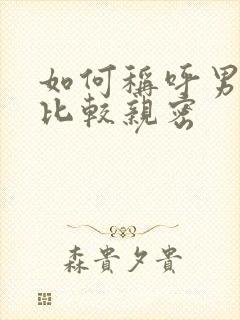 如何稱呼男
比較親密
森貴夕貴